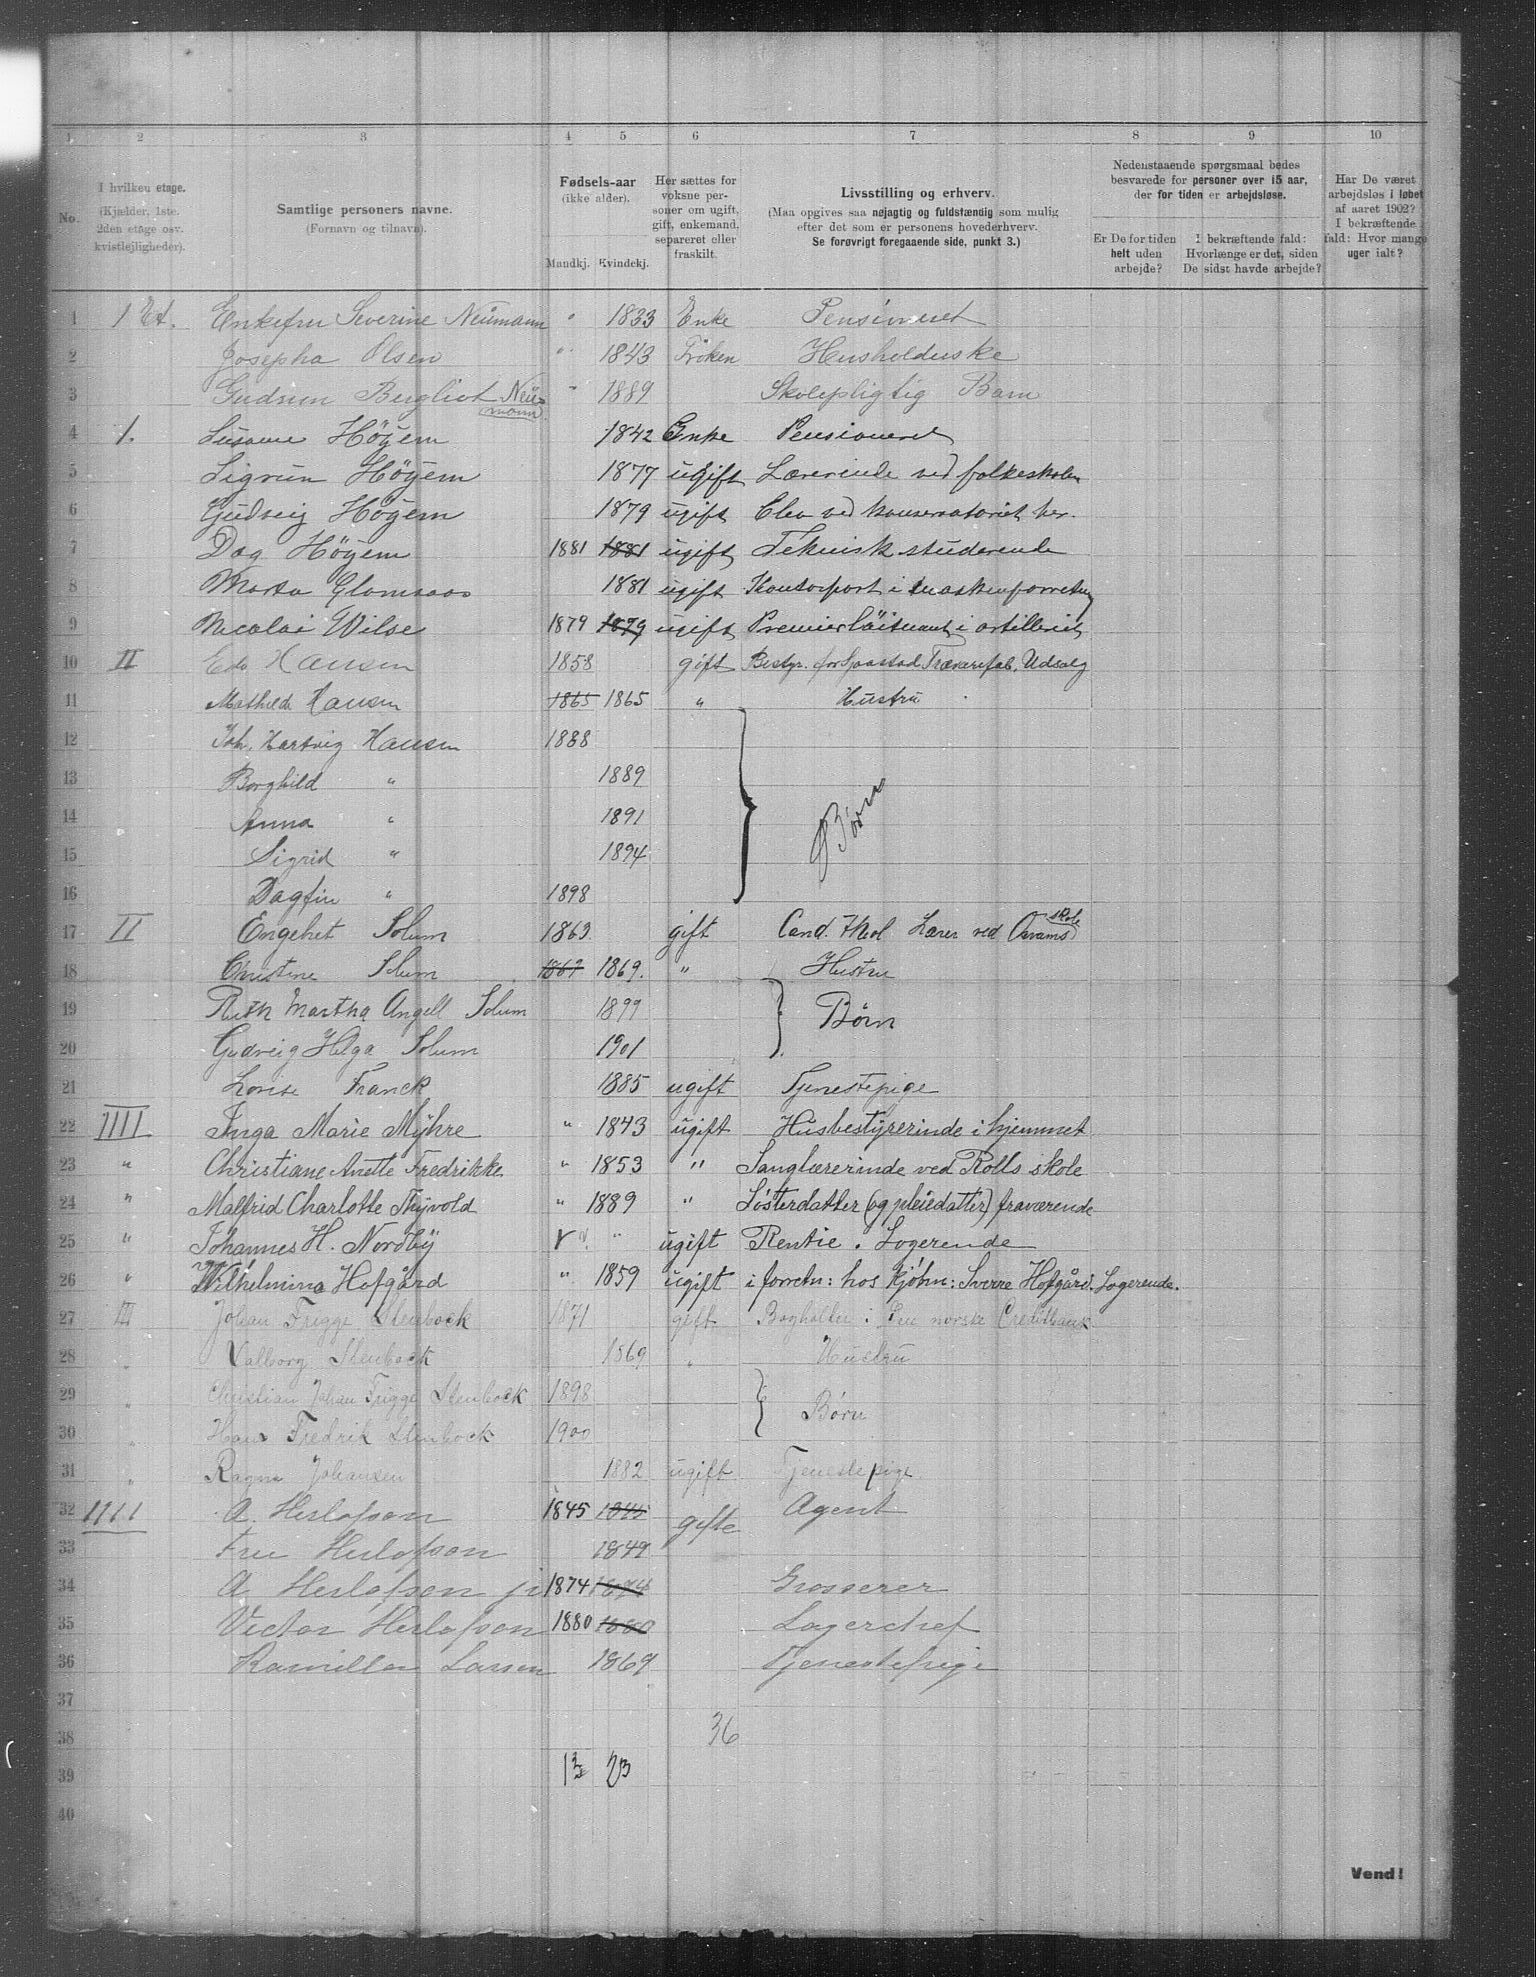 1 2 3 4 5 6 7 8 9 10
No. I hvilken etage. (Kjælder, 1ste. 2den etage osv. kvistlejligheder). Samtlige personers navne. (Fornavn og tilnavn). Fødsels-aar (ikke alder). Mandkj. Kvindekj. Her sættes for voksne personer om ugift, gift, enkemand, separeret eller fraskilt. Livsstilling og erhverv. (Maa opgives saa nøjagtig og fuldstændig som mulig efter det som er personens hovederhverv. Se forøvrigt foregaaende side, punkt 3.) Nedenstaaende spørgsmaal bedes besvarede for personer over 15 aar, der for tiden er arbejdsløse. Er De for tiden helt uden arbejde? I bekræftende fald: Hvorlænge er det, siden De sidst havde arbejde? Har De været arbejdsløs i løbet af aaret 1902? I bekræftende fald: Hvor mange uger ialt?
1 1 Et. Enkefru Severine Neümann " 1833 Enke Pensioneret
2 Josepha Olsen " 1843 Frøken Husholderske
3 Gudrun Bergliot Neümann " 1889 Skolepligtig Barn
4 1. Susanne Höyem 1842 Enke Pensioneret
5 Sigrun Höyem 1877 ugift Lærerinde ved folkeskolen
6 Gudveig Höyem 1879 ugift Elev ved konservatoriet her.
7 Dag Höyem 1881 1881 ugift Teknisk studerende
8 Marta Glomsaas 1881 ugift 
9 Nicolai Wilse 1879 1879 ugift Premierlöitnant i artilleriet
10 II Edv Hansen 1858 gift Bestyr. for Spaastad Trævarefab. Udsalg
11 Mathilde Hansen 1865 1865 " Hustru
12 Joh. Hartvig Hansen 1888
13 Borghild " 1889
14 Anna " 1891
Børn
15 Sigrid " 1894
16 Dagfin " 1898
17 II Engebret Solum 1863 gift Cand. theol Lærer ved Qvams skole
18 Christine Solum 1869 1869. " Hustru
19 Ruth Martha Angell Solum 1899 Børn
20 Gudveig Helga Solum 1901
21 Lovise Franck 1885 ugift Tjenestepige
22 IIII Inga Marie Mÿhre " 1843 ugift Husbestyrerinde i hjemmet
23 " Christiane Anette Fredrikke " 1853 " Sanglærerinde ved Rolls skole
24 " Malfrid Charlotte Thÿvold " 1889 " Sösterdatter (og pleiedatter) fraværende
25 " Johannes H. Nordbÿ " ugift Rentie. Logerende
26 " Wilhelmina Hofgård " 1859 ugift i forretn: hos Kjöhn: Sverre Hofgård. Logerende.
27 III Johan Frigge Stenbock 1871 gift Bogholder i Den norske Creditbank
28 " Valborg Stenbock 1869 " Hustru
29 " Christian Johan Frigge Stenbock 1898 Børn
30 " Hans Fredrik Stenbock 1900
31 " Ragna Johansen 1882 ugift Tjenestepige
32 1111 A. Herlofson 1845 1845 gifte Agent
33 Fru Herlofson 1849
34 A Herlofson jr 1874 1874 Grosserer
35 Victor Herlofson 1880 1880 Lagerchef
36 Kamilla Larsen 1869 Tjenestepige
37
38 36
39 13 23
40
Vend!